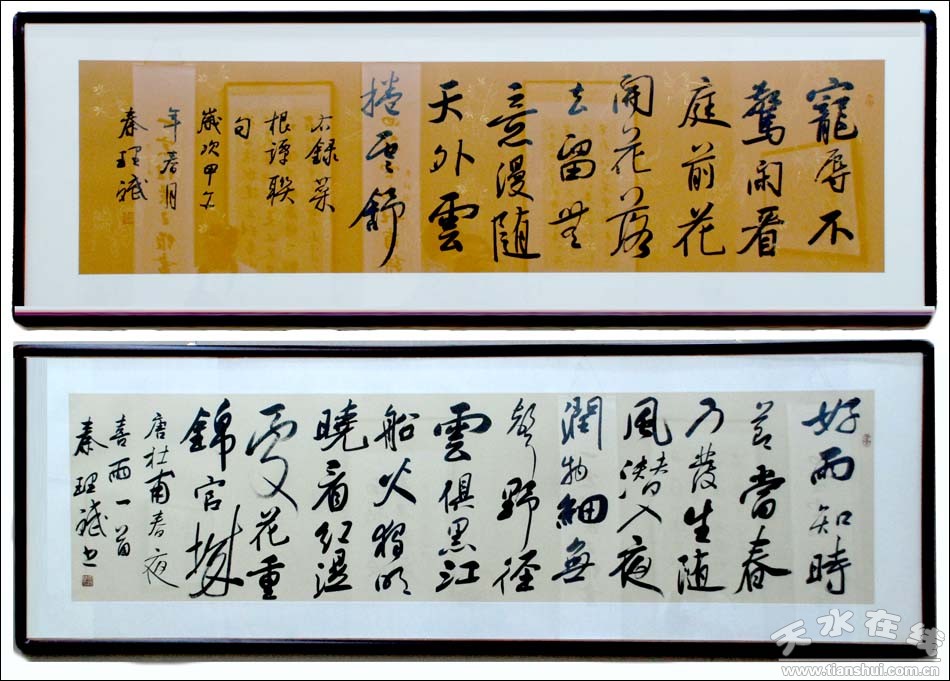 寵辱不
驚閑看
庭前花
開花落
去留無
意漫随
天外雲
捲雲舒
右録菜
根譚聯
句
歲次甲午
年春月
秦理斌
好雨知時
節當春
乃發生随
風潛入夜
潤物細無
聲野徑
雲俱黑江
船火獨明
曉看紅濕
處花重
錦官城
唐杜甫春夜
喜雨一首
秦理斌書
天水在线
www.tianshui.com.cn